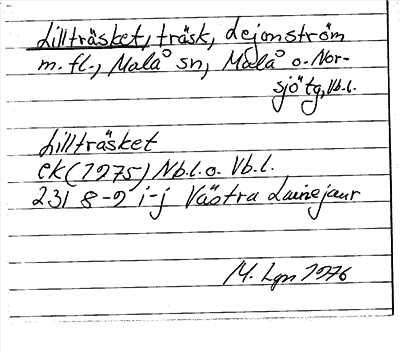 Lillträsket, träsk, Lejonström
m. fl., Malå sn, Malå o. Nor-
sjö tg, Vb.l.
Lillträsket
ek (1975) Nb.l. o. Vb.l.
231 8-9 i-j Västra Lainejaur
M. Lgn 1976